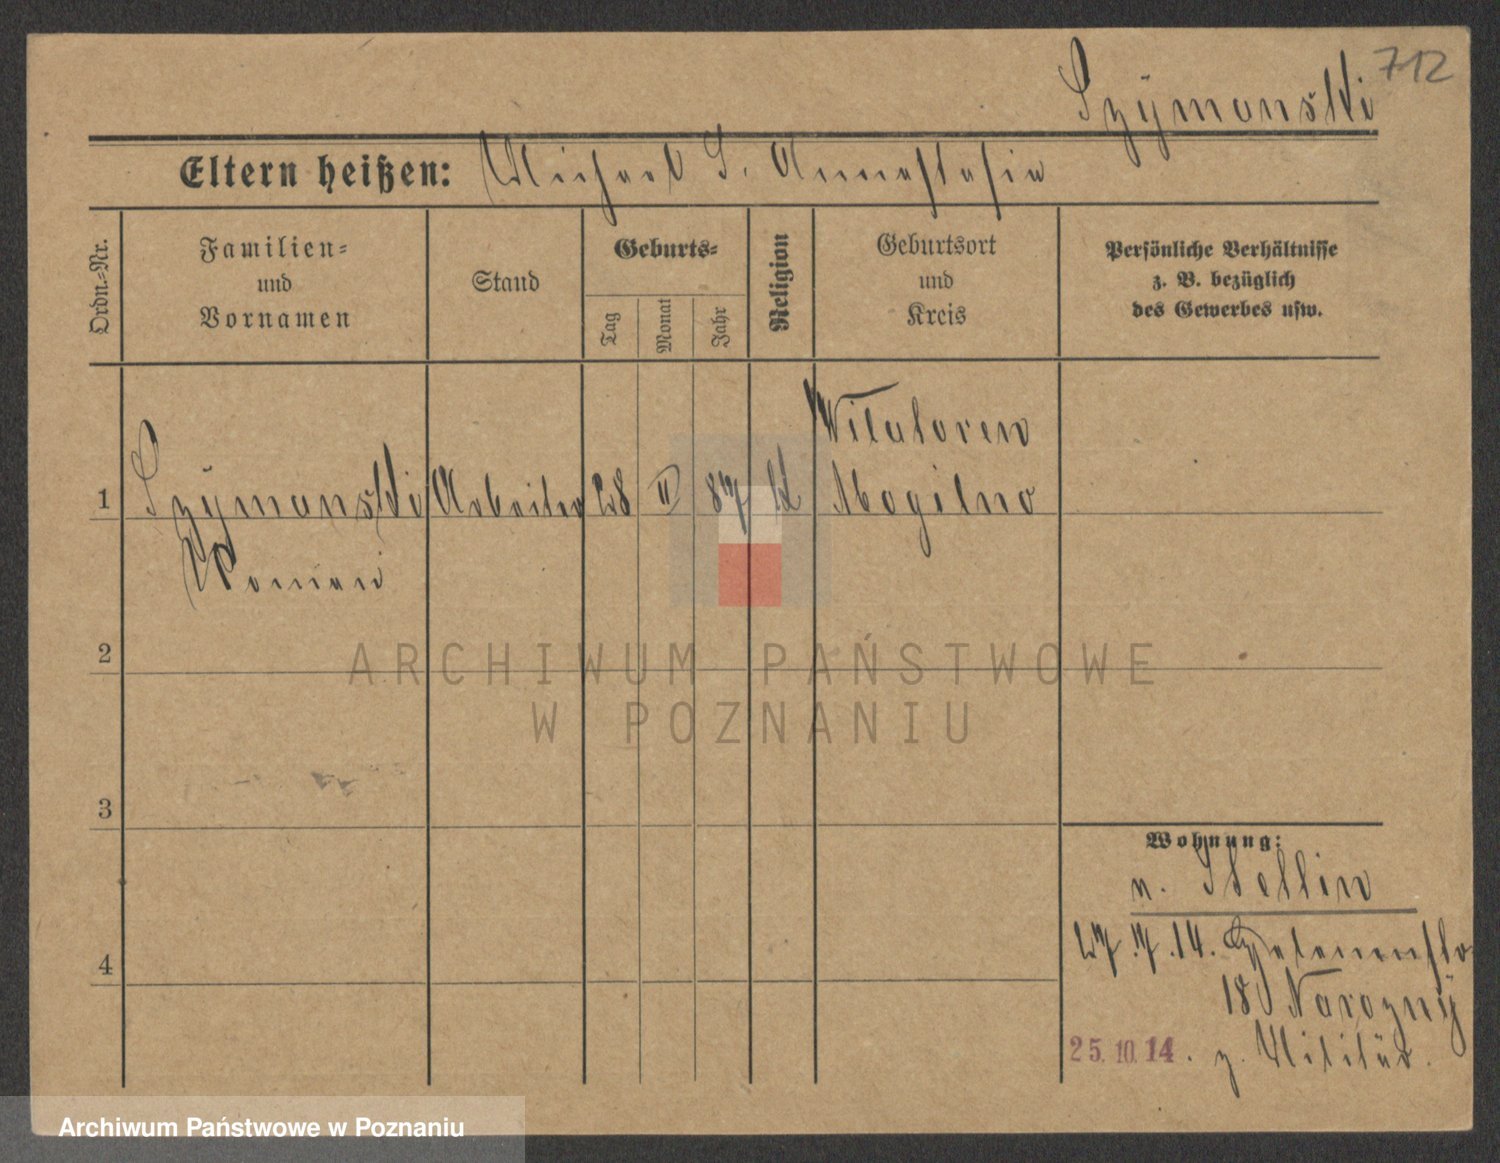 712
Szymanski
Eltern heißen: Michael S. Annastasia
Ordn.=Nr.
Familien=
und
Vornamen
Stand
Geburts=
Tag
Monat
Jahr
Religion
Geburtsort
und
Kreis
Persönliche Verhältnisse
z. B. bezüglich
des Gewerbes usw.
1
Szymanski
Roman
Arbeiter
28
II
87
k
Mogilno
2
3
4
ARCHIWUM PAŃSTWOWE
W POZNANIU
Wohnung:
n. Stettin
27.7.14. Helenenstr
18 Narozny
25.10.14. z. Militär.
Archiwum Państwowe w Poznaniu